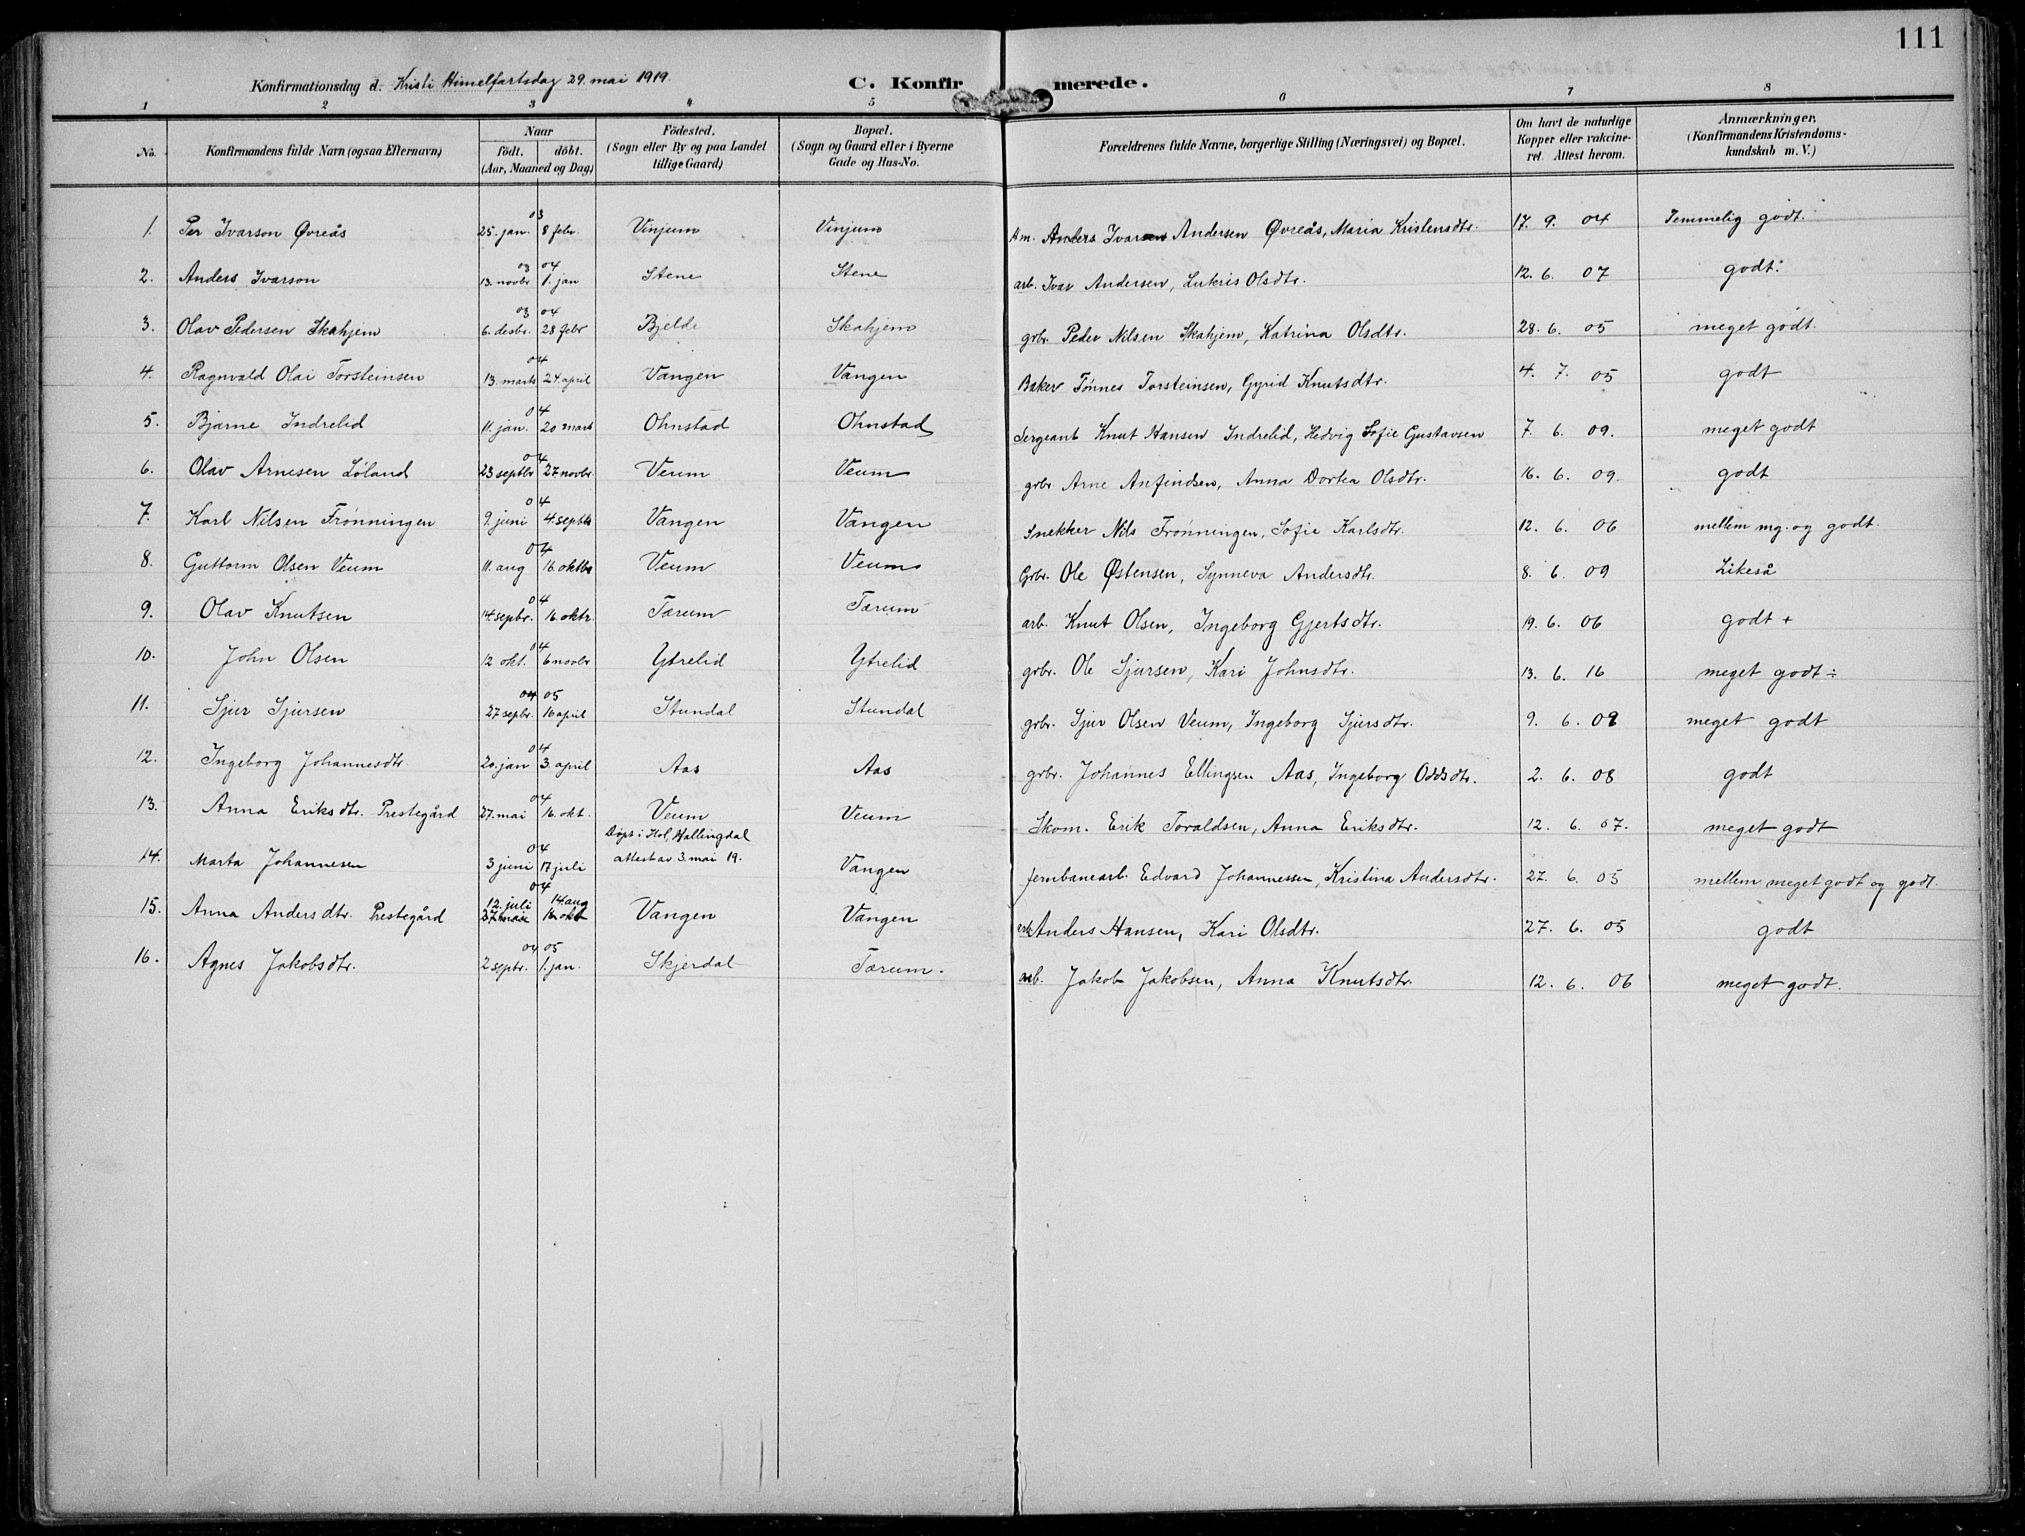 111
Konfirmationsdag d. Kristi Himelfartsdag 29. mai 1919. C. Konfirmerede.
1 2 3 4 5 6 7 8
No. Konfirmandens fulde Navn (ogsaa Efternavn) Naar födt. döbt. (Aar, Maaned og Dag) Födested. (Sogn eller By og paa Landet tillige Gaard) Bopæl. (Sogn og Gaard eller i Byerne Gade og Hus-No. Forældrenes fulde Navne, borgerlige Stilling (Næringsvei) og Bopæl. Om havt de naturlige Kopper eller vakcineret. Attest herom. Anmærkninger, (Konfirmandens Kristendomskundskab m. V.)
03
1. Per Ivarson Øvreås 25. jan. 8 febr. Vinjum Vinjum Hm. Anders Ivarsen Andersen Øvreås, Maria Kristensdtr. 17. 9. 04 Temmelig godt.
03 04
2. Anders Ivarson 13. novbr 1. jan Stene Stene arb. Ivar Andersen, Lukris Olsdtr. 12. 6. 07 godt.
03 04
3. Olav Pedersen Skahjem 6. desbr. 28 febr Bjelde Skahjem grbr. Peder Nilsen Skahjem, Katrina Olsdtr. 28. 6. 05 meget godt.
04
4. Ragnvald Olai Torsteinsen 13. marts 24. april Vangen Vangen Baker Tønnes Torsteinsen, Gyrid Knutsdtr. 4. 7. 05 godt
04
5. Bjarne Indrelid 11. jan. 20 marts Ohnstad Ohnstad Sergeant Knut Hansen Indrelid, Hedvig Sofie Gustavsen 7. 6. 09. meget godt
04
6. Olav Arnesen Löland 23 septbr 27 novbr. Veum Veum grbr. Arne Anfindsen, Anna Dortea Olsdtr. 16. 6. 09. godt
04
7. Karl Nilsen Frønningen 9. juni 4. septbr Vangen Vangen Snekker Nils Frønningen, Sofie Karlsdtr. 12. 6. 06 mellem mg. og godt.
04
8. Guttorm Olsen Veum 11. aug 16. oktbr Veum Veum Grbr. Ole Østensen, Synneva Andersdtr. 8. 6. 09 Likeså
04
9. Olav Knutsen 14. sepbr. 16. oktr. Tærum Tærum arb. Knut Olsen, Ingeborg Gjertsdtr. 19. 6. 06 godt +
04
10. John Olsen 12 okt. 6 novbr Ytrelid Ytrelid grbr. Ole Sjursen, Kari Johnsdtr. 13. 6. 16 meget godt ÷
04 05
11. Sjur Sjursen 27 sepbr. 16 april Stundal Stundal grbr. Sjur Olsen Veum, Ingeborg Sjursdtr. 9. 6. 09 meget godt
04
12. Ingeborg Johannesdtr. 20. jan 3. april Aas Aas grbr. Johannes Ellingsen Aas, Ingeborg Oddsdtr. 2. 6. 08 godt
04
13. Anna Eriksdtr. Prestegård 27. mai 16. okt. Veum Veum Skom. Erik Toraldsen, Anna Eriksdtr. 12. 6. 07. meget godt
Døpt i Hol, Hallingdal
attest av 3. mai 19.
04
14. Marta Johannesen 3 juni 17 juli Vangen Jernbanearb. Edvard Johannessen, Kristina Andersdtr. 27. 6. 05 mellem meget godt og godt.
04
12. juli 14. aug
15. Anna Andersdtr. Prestegård 27 mai 16. okt Vangen Vangen arb. Anders Hansen, Kari Olsdtr. 27. 6. 05 godt
04 05
16. Agnes Jakobsdtr. 2 septr. 1. jan. Skjerdal Tærum. arb. Jakob Jakobsen, Anna Knutsdtr. 12. 6. 06 meget godt.